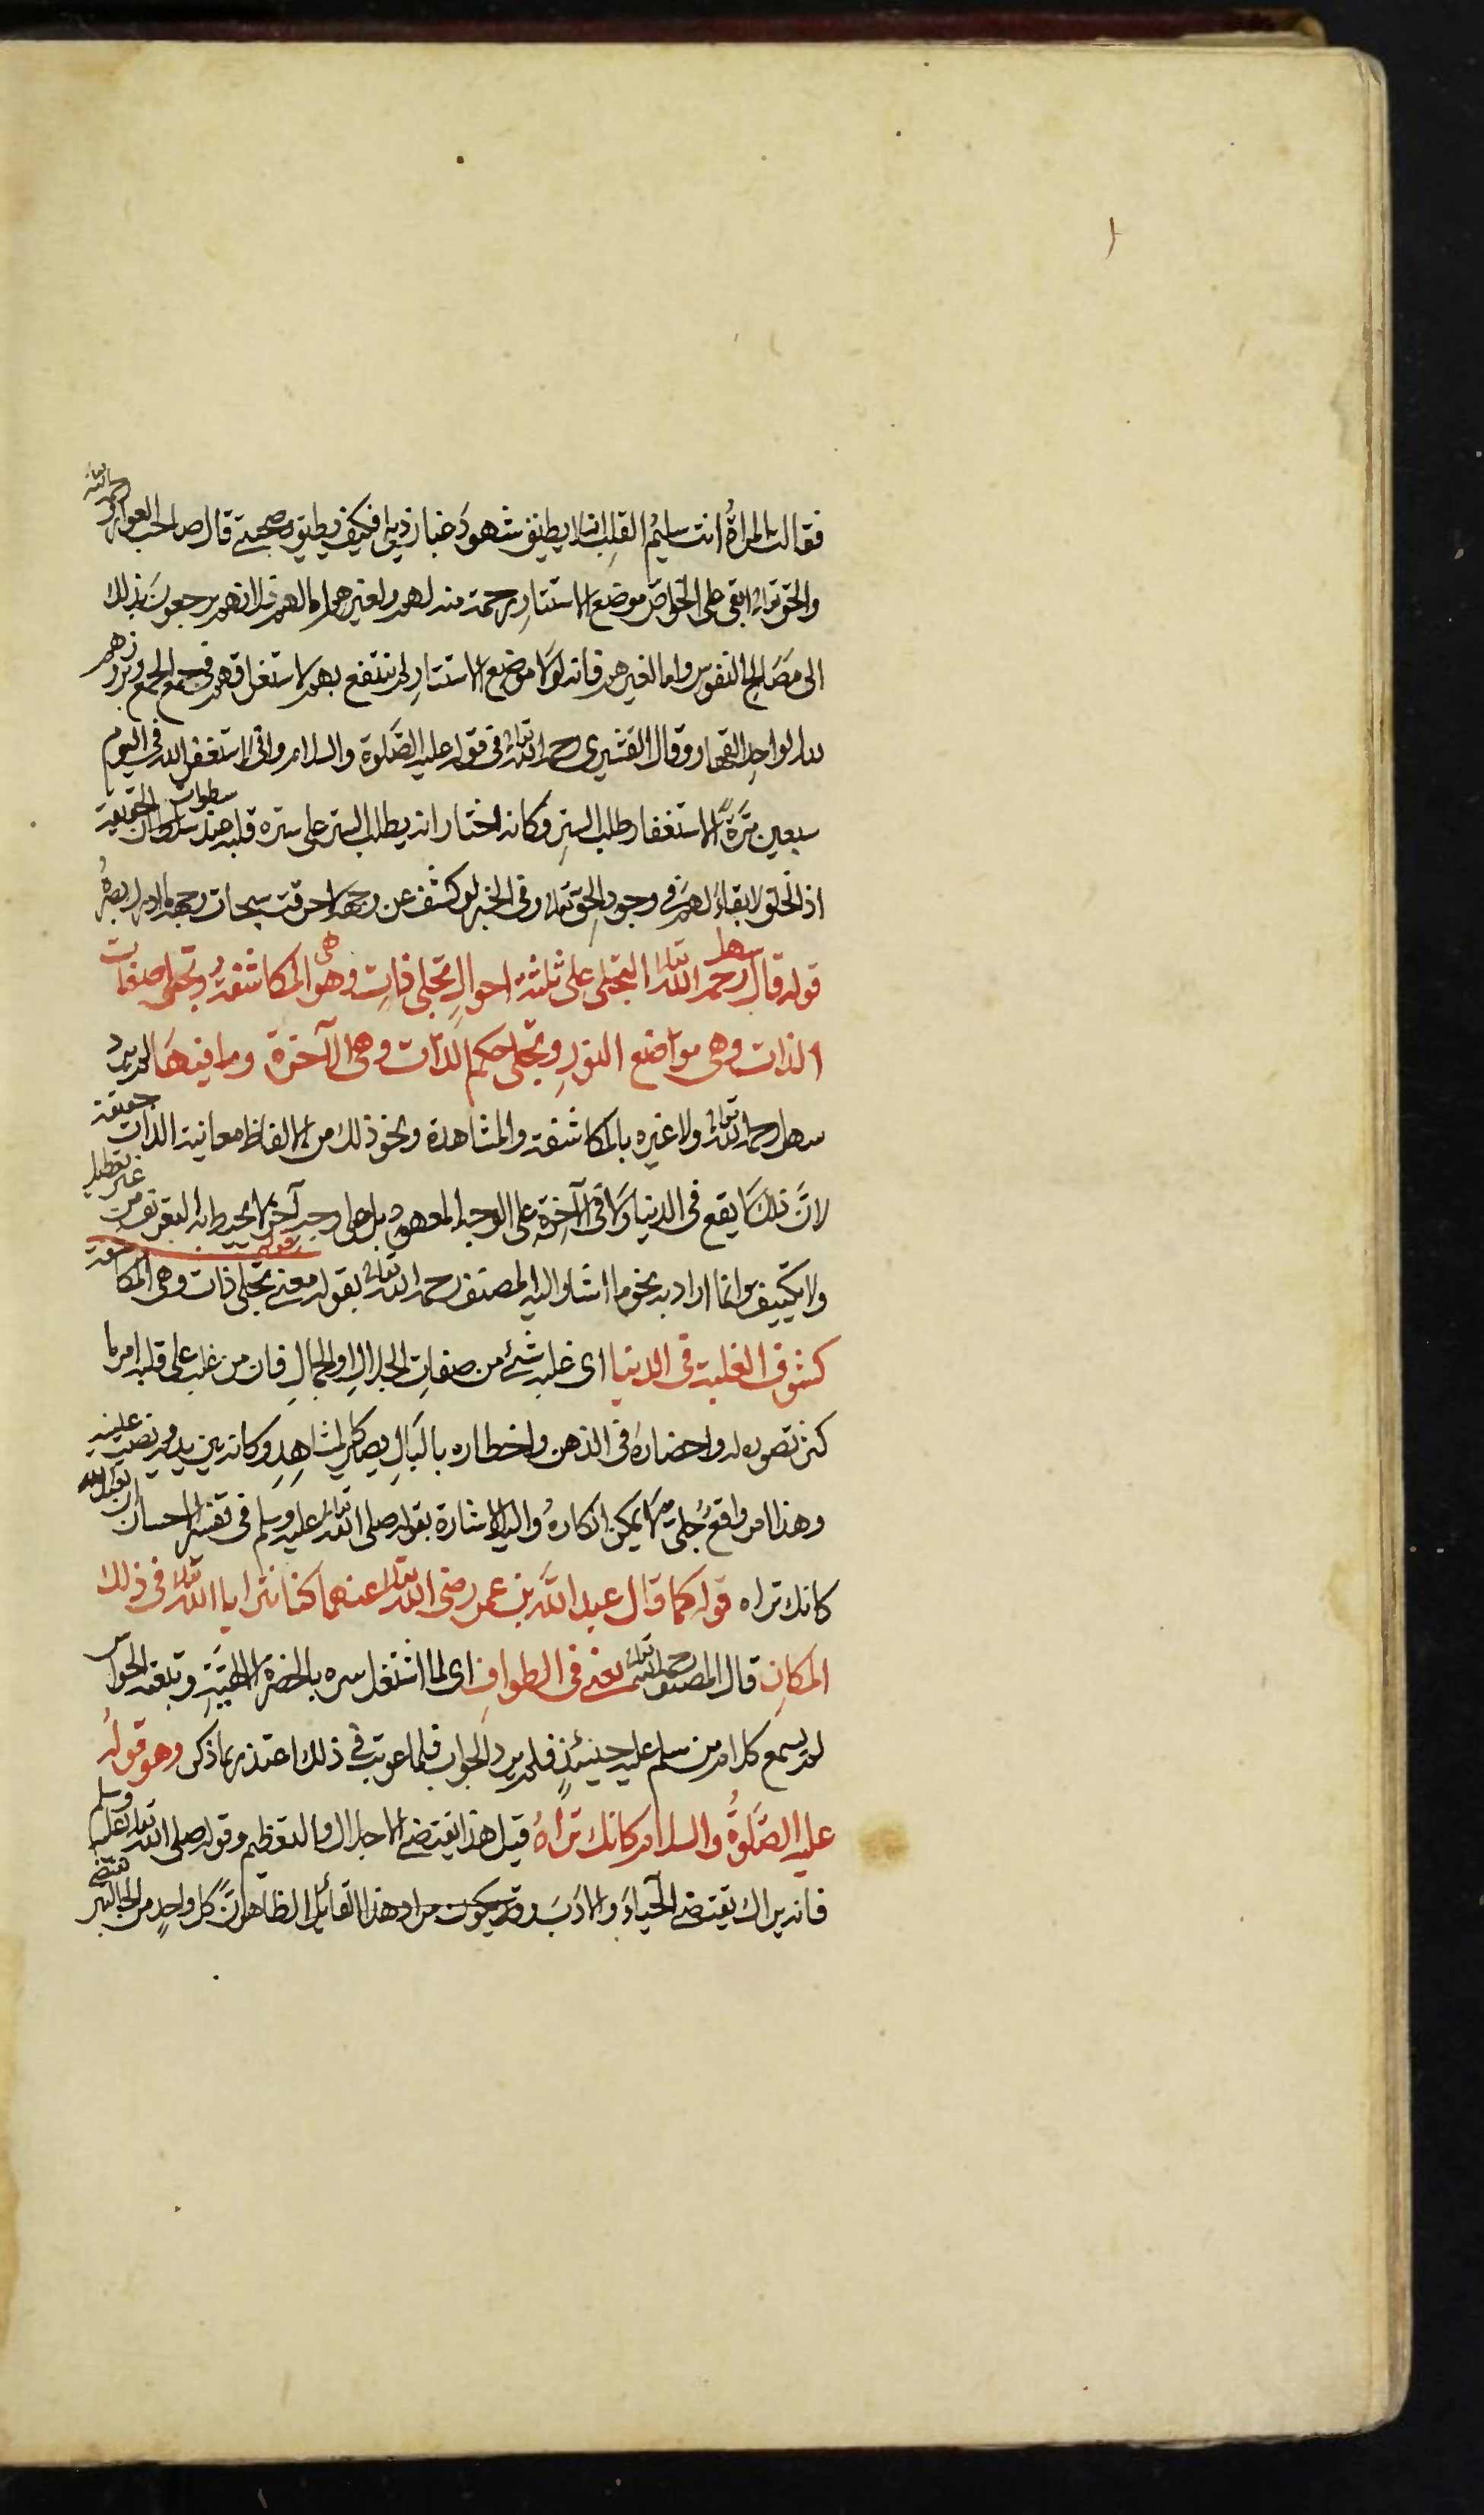 فقالت المرأةُ انت سليمُ القلبِ انه لا يطيق شهودَ غبار ذيلي فكيف يطيق صحبتي قال صاحب العوارف رحمه الله
والحق تعالى ابقى على الخواص موضع الاستتارِ رحمة منه لهم ولغيرهم اما لهم فلانهم يرجعونَ بذلك
الى مَصَالحِ النفوس واما لغيرهم فانه لولا موضع الاستتارِ لم ينتفع بهم لاستغراقهم فى جمع الجمع وبروزهم
لله الواحِدِ القهار وقال القشيرى رحمه الله تعالى فى قوله عليه الصَّلوة والسلام وانى لاستغفر الله فى اليوم
سبعين مَرّةً الاستغفار طلب السترِ وكانه اخبار انه يطلب الستر على سره قلبه عند سطوات الحقيقة
اذ الخلق لا بقاءَ لهم فى وجودِ الحق تعالى وفى الخبر لو كشف عن وجهه لاحرقت سبحات وجهه ما ادرك بصرُه
قوله قال سهل رحمه الله تعالى التجلى على ثلثة احوالٍ تجلى ذاتٍ وهى المكاشفةُ وتجلى صفات
الذات وهى مواضع النورِ وتجلى حكم الذات وهى الآخرة وما فيهَا لم يرد
سهل رحمه الله تعالى ولا غيره بالمكاشفة والمشاهدة ونحو ذلك من الالفاظ معاينة الذات حقيقة
لانَّ ذلك لا يقع فى الدنيا ولا فى الآخرة على الوجه المعهود بل على وجهٍ آخر لا يحيط به التعريف من غير تعطيل
ولا تكييف وانما اراد به نحو ما اشار اليه المصنف رحمه الله تعالى بقوله قوله معنى تجلى ذات وهى المكاشفة
كشوف الغلبة فى الدنيا اى غلبه شئ من صفاتِ الجلالِ او الجمالِ فان من غلب على قلبه امر ما
كثر تصوره له واحضارهُ فى الذهن واخطاره بالبَالِ يصير كالمشاهِدِ وكانه بين يديه ونصب عينيه
وهذا امر واقعٌ جلى لا يمكن انكارهُ واليه الاشارة بقوله صلى الله تعالى عليه وسلم فى تفسير الاحسان ان تعبد الله
كانك تراه قوله كما قال عبد الله بن عمر رضى الله تعالى عنهما كنا نترايا الله تعالى فى ذلك
المكانِ قال المصنف رحمه الله تعالى يعنى فى الطوافِ اى لما اشتغل سره بالحضرة الالهيَّةِ وتبعته الحواس
لم يسمع كلام من سلم عليه حينئذٍ فلم يرد الجواب فلما عوتب فى ذلك اعتذر بما ذكر وهو قولُه
عليه الصَّلوةُ والسلام كانك تراهُ قيل هذا يقتضى الاجلال والتعظيم وقوله صلى الله تعالى عليه وسلم
فانه يراك يقتضى الحياءَ والادَبَ وقد يكون مراد هذا القائل الظاهر انَّ كل واحدٍ من الحالتين يقتضى